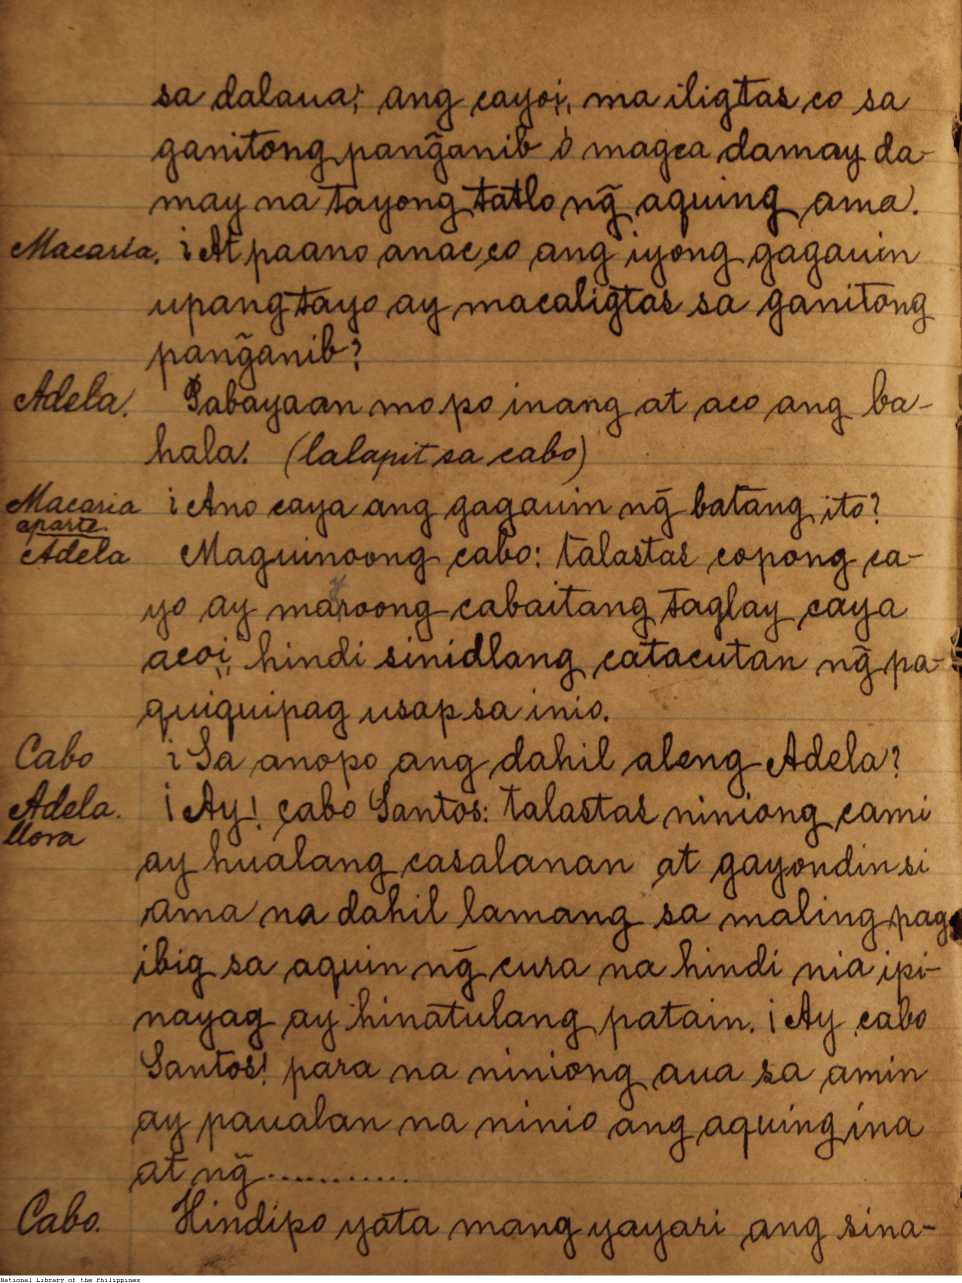 sa dalaua; ang cayoi, ma iligtas co sa
ganitong pang̃anib ó magca damay da-
may na tayong tatlo ng̃ aquing ama.
Macaria. ¡At paano anac co ang iyong gagauin
upang tayo ay macaligtas sa ganitong
pang̃anib?
Adela. Pabayaan mo po inang at aco ang ba-
hala. (lalapit sa cabo)
Macaria ¿Ano caya ang gagauin ng̃ batang ito?
aparte.
Adela Maguinoong cabo: talastas copong ca-
yo ay mayroong cabaitang taglay caya
acoi, hindi sinidlang catacutan ng̃ pa-
quiquipag usap sa inio.
Cabo ¿Sa anopo ang dahil aleng Adela?
Adela. ¡Ay! cabo Santos: talastas niniong cami
llora
ay hualang casalanan at gayondin si
ama na dahil lamang sa maling pag
ibig sa aquin ng̃ cura na hindi nia ipi-
nayag ay hinatulang patain. ¡Ay cabo
Santos! para na niniong aua sa amin
ay paualan na ninio ang aquing ina
at ng̃............
Cabo. Hindipo yata mang yayari ang sina-
National Library of the Philippines